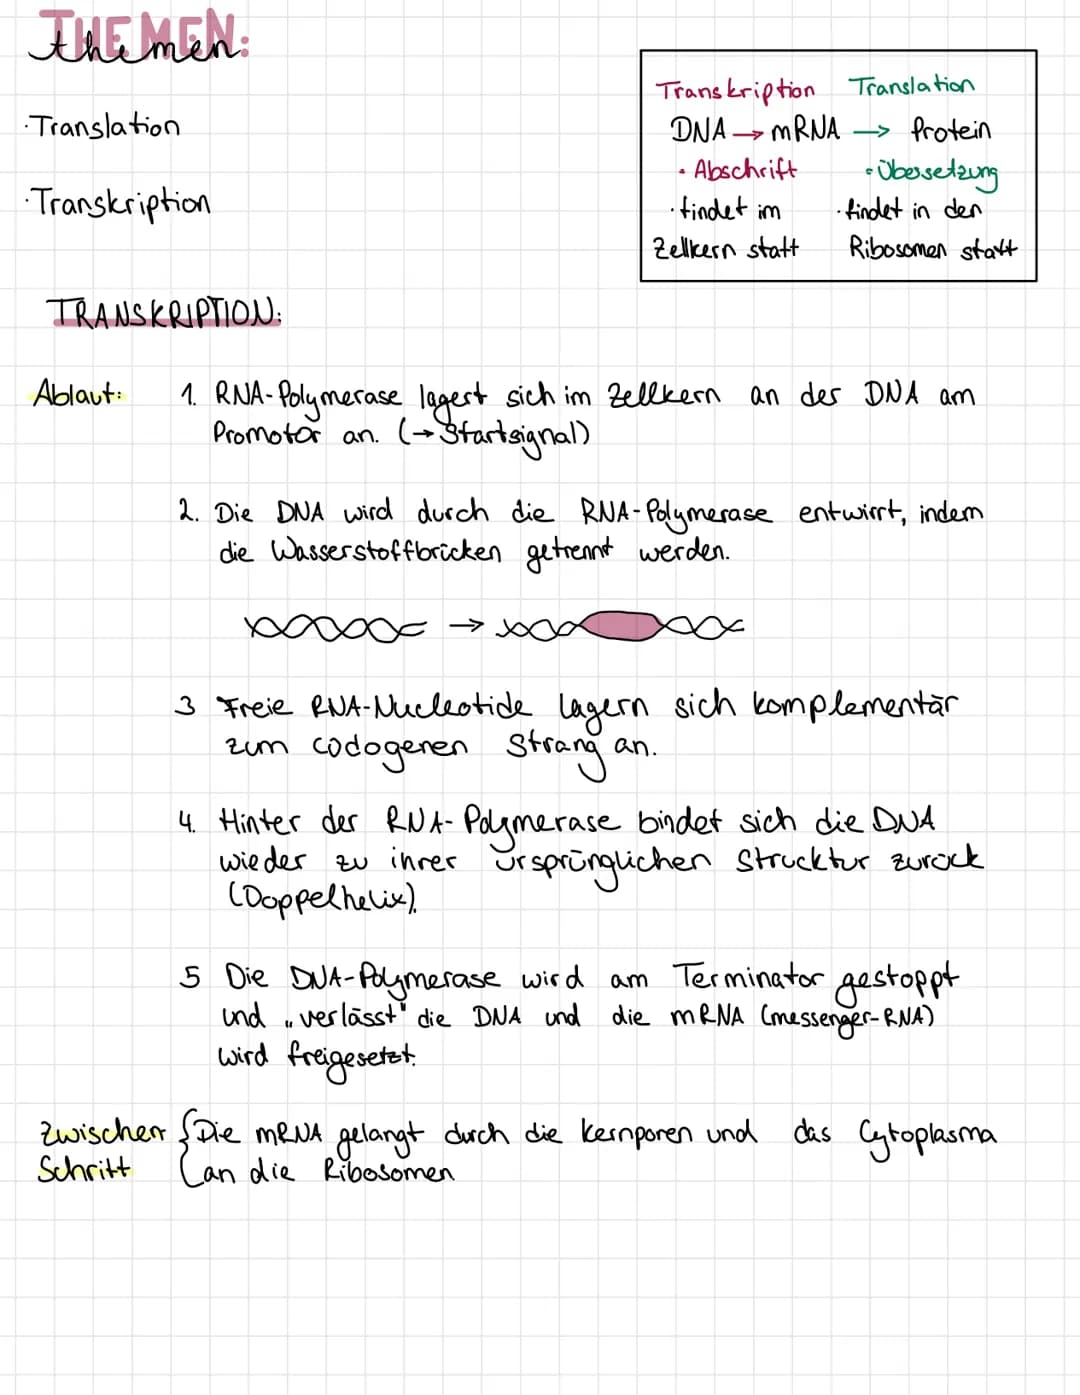 THEMEN:
themen:
·Translation
·Transkription
Transkription Translation
DNA → mRNA → Protein
· Abschrift · Übersetzung
· findet im · findet in den
Zellkern statt Ribosomen statt
TRANSKRIPTION:
Ablauf: 1. RNA-Polymerase lagert sich im Zellkern an der DNA am
Promotor an. (→ Startsignal)
2. Die DNA wird durch die RNA-Polymerase entwirrt, indem
die Wasserstoffbrücken getrennt werden.
→
3 Freie RNA-Nucleotide lagern sich komplementär
zum codogenen Strang an.
4. Hinter der RNA-Polymerase bindet sich die DNA
wieder zu ihrer ursprünglichen Strucktur zurück
(Doppelhelix).
5 Die DNA-Polymerase wird am Terminator gestoppt
und „verlässt" die DNA und die mRNA (messenger-RNA)
wird freigesetzt.
Zwischen { Die mRNA gelangt durch die Kernporen und das Cytoplasma
Schritt an die Ribosomen